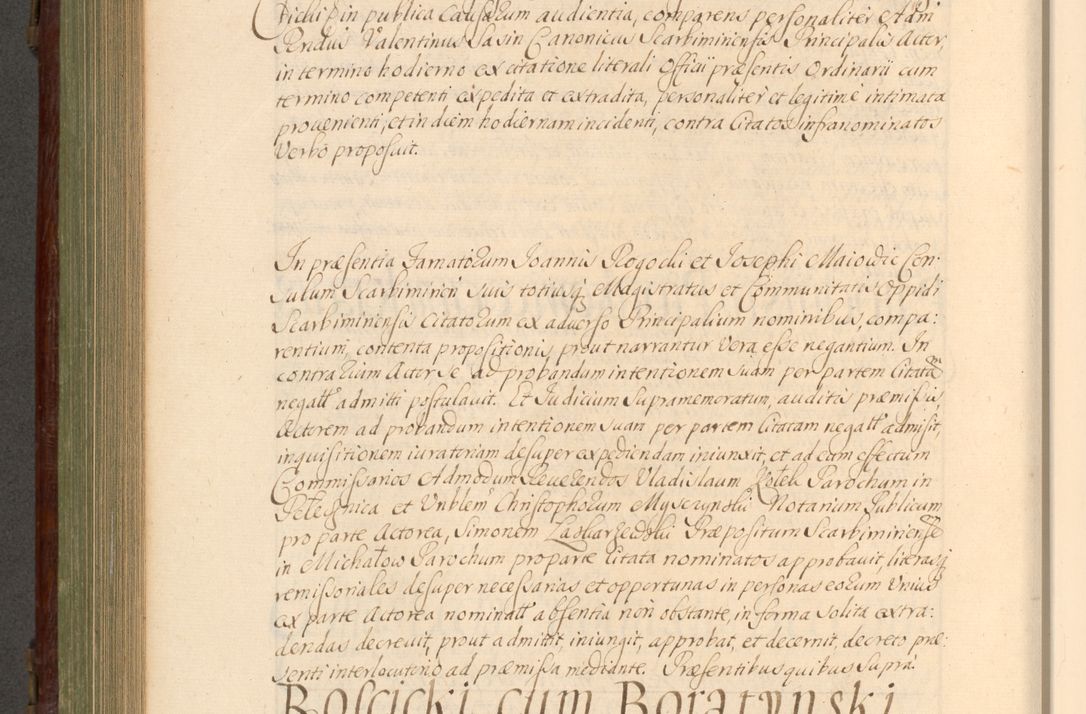 in publica Causarum audientia, comparens personaliter Adm
Rendus Valentinus Lasin Canonicus Scarbimiriensis Principalis Actor,
in termino hodierno ex citatione literali Officii præsentis Ordinarii cum
termino competenti expedita et extradita, personaliter et legitime intimata
provenienti, et in diem hodiernam incidenti, contra Citatos infranominatos
Verbo proposuit.
In præsentia Famatorum Joannis Rogocki et Josephi Maiowic Con:
sulum Scarbimirien suis totiusq Magistratus et Communitatis Oppidi
Scarbimiriensis Citatorum ex adverso Principalium nominibus, compa:
rentium, contenta propositionis, prout narrantur vera esse negantium. In
contrarium Actor se ad probandum intentionem suam per partem Citatam
negatt admitti postulavit. Et Judicium supramemoratum, auditis præmissis
Actorem ad probandum intentionem suam per partem Citatam negatt admisit,
inquisitionem iuratoriam desuper expediendam iniunxit, et ad eum effectum
Commissarios Admodum Reverendos Vladislaum Kołek Parochum in
Pełcznica et Vnblem Christophorum Myszynski Notarium Publicum
pro parte Actorea, Simonem Præpositum Scarbimiriensem
in Michałow Parochum pro parte Citata nominatos approbavit, literasq
remissoriales desuper necessarias et opportunas in personas eorum Vnius
ex parte Actorea nominatt absentia non obstante, in forma solita extra:
dendas decrevit, prout admittit, iniungit, approbat, et decernit, decreto præ:
senti interlocutorio ad præmissa mediante. Præsentibus quibus supra.
Roscicki cum Boratynski